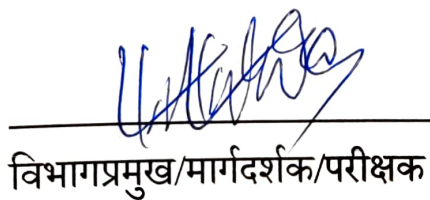 विभागप्रमुख/मार्गदर्शक/परीक्षक